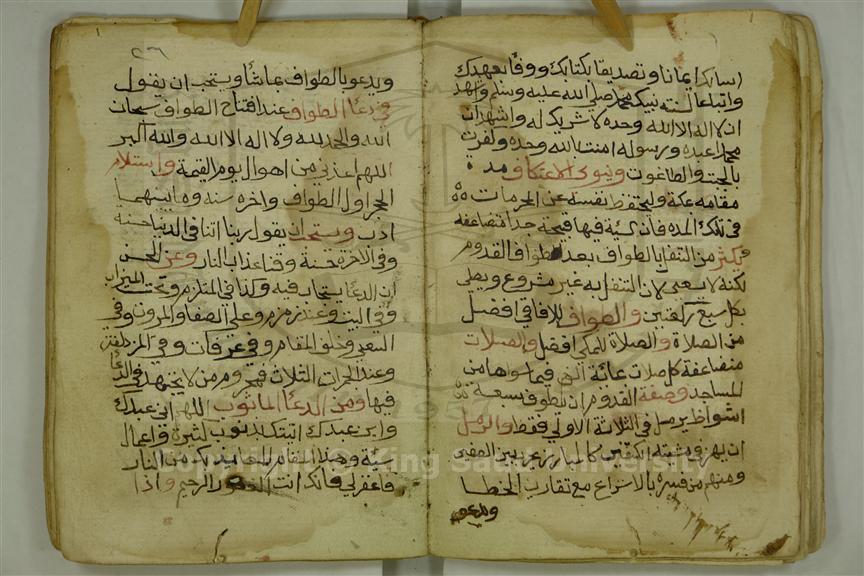 اسانك ايمانا وتصديقا بكتابك ووفا بعهدك
واتباعا لسنة نبيك محمد صلي الله عليه وسلم واشهد
ان لا اله الا الله وحده لا شريك له واشهد ان
محمدا عبده ورسوله امنت بالله وحده وكفرت
بالجبت والطاغوت وينوي الاعتكاف مدة
مقامه بمكة وليحتفظ نفسه عن المحرمات
في تلك المدة فان كل سيئة فيها قبيحة جدا متضاعفة
ويكثر من التنفل بالطواف بعد طواف القدوم
لكنه لا يسعي لان التنفل به غير مشروع ويصلي
بكل سبع ركعتين والطواف للافاقي افضل
من الصلاة والصلاة للمكي افضل والصلات
متضاعفة كل صلات بمائة الف فيما سواها من
المساجد وصفة القدوم ان يطوف بسعة
اشواط يرمل في الثلاثة الاولي فقط والرمل
ان يهز مشيته الكتفين كالمبارز بين الصفين
ومنهم من فسره بالاسراع مع تقارب الخطا
ويدعو
٢٦
ويدعو بالطواف بماشا ويستحب ان يقول
في دعا الطواف عند افتتاح الطواف سبحان
الله والحمد لله ولا اله الا الله والله اكبر
اللهم اعذني من اهوال يوم القيمة واستلام
الحجر اول الطواف واخره سنة وما بينهما
ادب ويستحب ان يقول ربنا اتنا في الدنيا حسنة
وفي الاخرة حسنة وقنا عذاب النار وعن الحسن
ان الدعا يستجاب فيه وكذا في الملتزم وتحت الميزاب
وفي البيت وعند زمزم وعلي الصفا والمروة وفي
السعي وخلف المقام وفي عرفات وفي المزدلفة
وعند الجمرات الثلاث فمحروم من لا يجتهد في الدعا
فيها ومن الدعا الماثور اللهم اني عبدك
وابن عبدك اتيتك بذنوب كثيرة واعمال
سيئة وهذا مقام العايذ بك من النار
فاغفر لي فانك انت الغفور الرحيم واذا
Copyright © King Saud University
1957